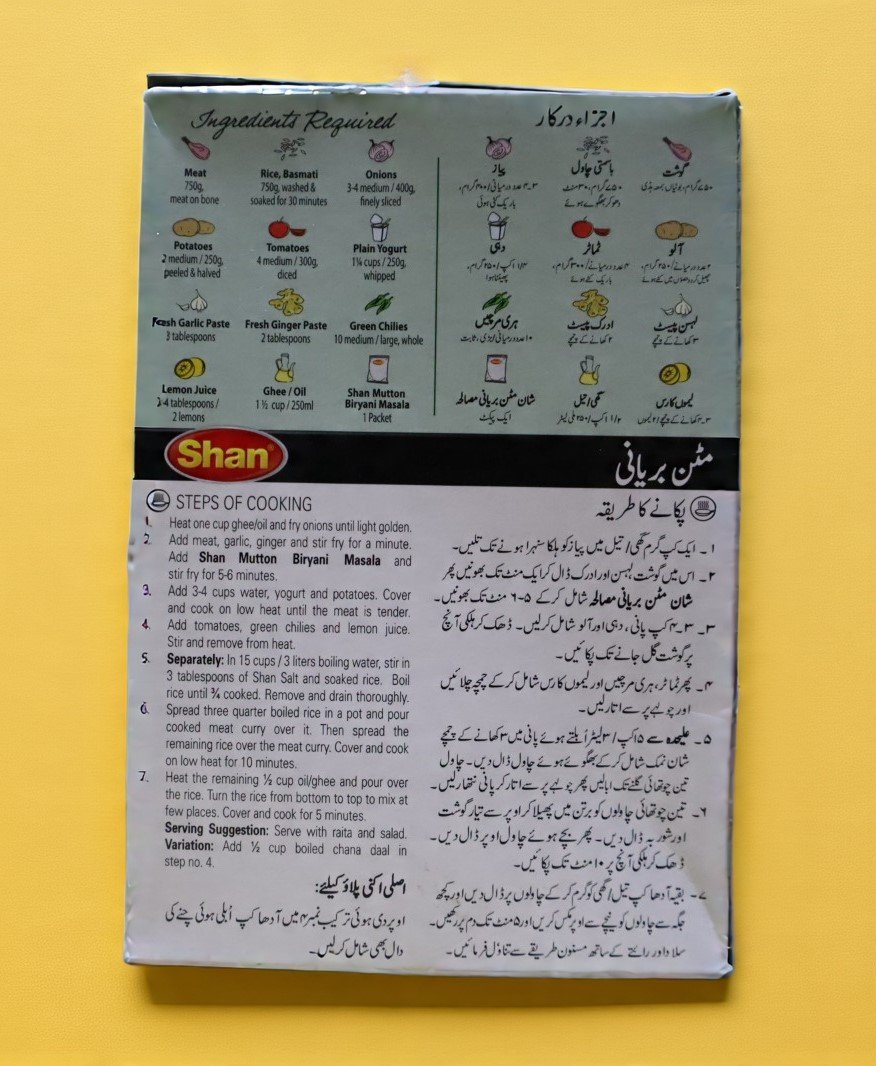 Ingredients Required
Meat
750g,
meat on bone
Rice, Basmati
750g, washed &
soaked for 30 minutes
Onions
3-4 medium / 400g,
finely sliced
Potatoes
2 medium / 250g,
peeled & halved
Tomatoes
4 medium / 300g,
diced
Plain Yogurt
1¼ cups / 250g,
whipped
Fresh Garlic Paste
3 tablespoons
Fresh Ginger Paste
2 tablespoons
Green Chilies
10 medium / large, whole
Lemon Juice
3-4 tablespoons /
2 lemons
Ghee / Oil
1 ½ cup / 250ml
Shan Mutton
Biryani Masala
1 Packet
اجزاء درکار
گوشت
۷۵۰ گرام، بوٹیاں بمعہ ہڈی
باسمتی چاول
۷۵۰ گرام، ۳۰ منٹ
دھو کر بھگوئے ہوئے
پیاز
۳-۴ عدد درمیانی / ۴۰۰ گرام،
باریک کٹی ہوئی
آلو
۲ عدد درمیانے / ۲۵۰ گرام،
چھیل کر دو حصوں میں کٹے ہوئے
ٹماٹر
۴ عدد درمیانے / ۳۰۰ گرام،
باریک کٹے ہوئے
دہی
۱/۴ ۱ کپ / ۲۵۰ گرام،
پھینٹا ہوا
لہسن پیسٹ
۳ کھانے کے چمچے
ادرک پیسٹ
۲ کھانے کے چمچے
ہری مرچیں
۱۰ عدد درمیانی / بڑی، ثابت
لیموں کا رس
۳-۴ کھانے کے چمچے / ۲ لیموں
گھی / تیل
۱/۲ ۱ کپ / ۲۵۰ ملی لیٹر
شان مٹن بریانی مصالحہ
ایک پیکٹ
Shan
مٹن بریانی
STEPS OF COOKING
1. Heat one cup ghee/oil and fry onions until light golden.
2. Add meat, garlic, ginger and stir fry for a minute.
Add Shan Mutton Biryani Masala and
stir fry for 5-6 minutes.
3. Add 3-4 cups water, yogurt and potatoes. Cover
and cook on low heat until the meat is tender.
4. Add tomatoes, green chilies and lemon juice.
Stir and remove from heat.
5. Separately: In 15 cups / 3 liters boiling water, stir in
3 tablespoons of Shan Salt and soaked rice. Boil
rice until ¾ cooked. Remove and drain thoroughly.
6. Spread three quarter boiled rice in a pot and pour
cooked meat curry over it. Then spread the
remaining rice over the meat curry. Cover and cook
on low heat for 10 minutes.
7. Heat the remaining ½ cup oil/ghee and pour over
the rice. Turn the rice from bottom to top to mix at
few places. Cover and cook for 5 minutes.
Serving Suggestion: Serve with raita and salad.
Variation: Add ½ cup boiled chana daal in
step no. 4.
اصلی اکنی پلاؤ کیلئے:
اوپر دی ہوئی ترکیب نمبر ۴ میں آدھا کپ اُبلی ہوئی چنے کی
دال بھی شامل کرلیں۔
پکانے کا طریقہ
۱۔ ایک کپ گرم گھی / تیل میں پیاز کو ہلکا سنہرا ہونے تک تلیں۔
۲۔ اس میں گوشت، لہسن اور ادرک ڈال کر ایک منٹ تک بھونیں پھر
شان مٹن بریانی مصالحہ شامل کر کے ۵-۶ منٹ تک بھونیں۔
۳۔ ۳-۴ کپ پانی، دہی اور آلو شامل کرلیں۔ ڈھک کر ہلکی آنچ
پر گوشت گل جانے تک پکائیں۔
۴۔ پھر ٹماٹر، ہری مرچیں اور لیموں کا رس شامل کر کے چمچہ چلائیں
اور چولہے پر سے اتارلیں۔
۵۔ علیحدہ سے ۱۵ کپ / ۳ لیٹر اُبلتے ہوئے پانی میں ۳ کھانے کے چمچے
شان نمک شامل کر کے بھگوئے ہوئے چاول ڈال دیں۔ چاول
تین چوتھائی گلنے تک ابالیں پھر چولہے پر سے اتار کر پانی نتھارلیں۔
۶۔ تین چوتھائی چاولوں کو برتن میں پھیلا کر اوپر سے تیار گوشت
اور شوربہ ڈال دیں۔ پھر بچے ہوئے چاول اوپر ڈال دیں۔
ڈھک کر ہلکی آنچ پر ۱۰ منٹ تک پکائیں۔
۷۔ بقیہ آدھا کپ تیل / گھی کو گرم کر کے چاولوں پر ڈال دیں اور کچھ
جگہ سے چاولوں کو نیچے سے اوپر مکس کریں اور ۵ منٹ تک دم پر رکھیں۔
سلاد اور رائتے کے ساتھ مسنون طریقے سے تناول فرمائیں۔